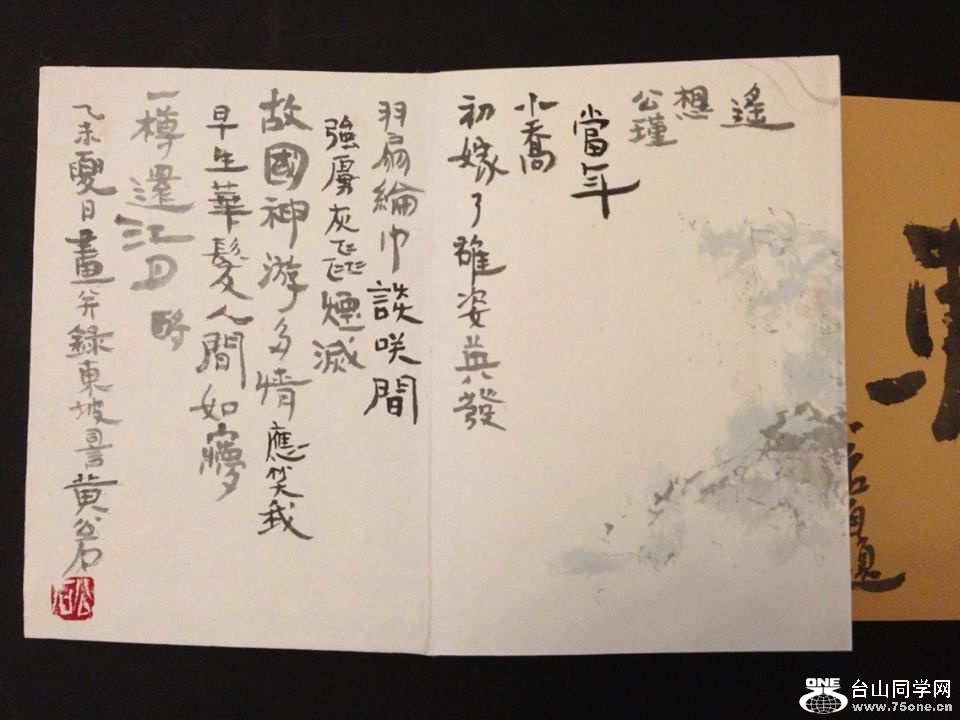 遙
想
公瑾
當年
小喬
初嫁了雄姿英發
羽扇綸巾談咲間
強虜灰飛煙滅
故國神游多情應笑我
早生華髮人間如夢
一樽還江月
乙未夏日畫并錄東坡言黃公石
公石
自題
ONE
台山同学网
www.75one.cn